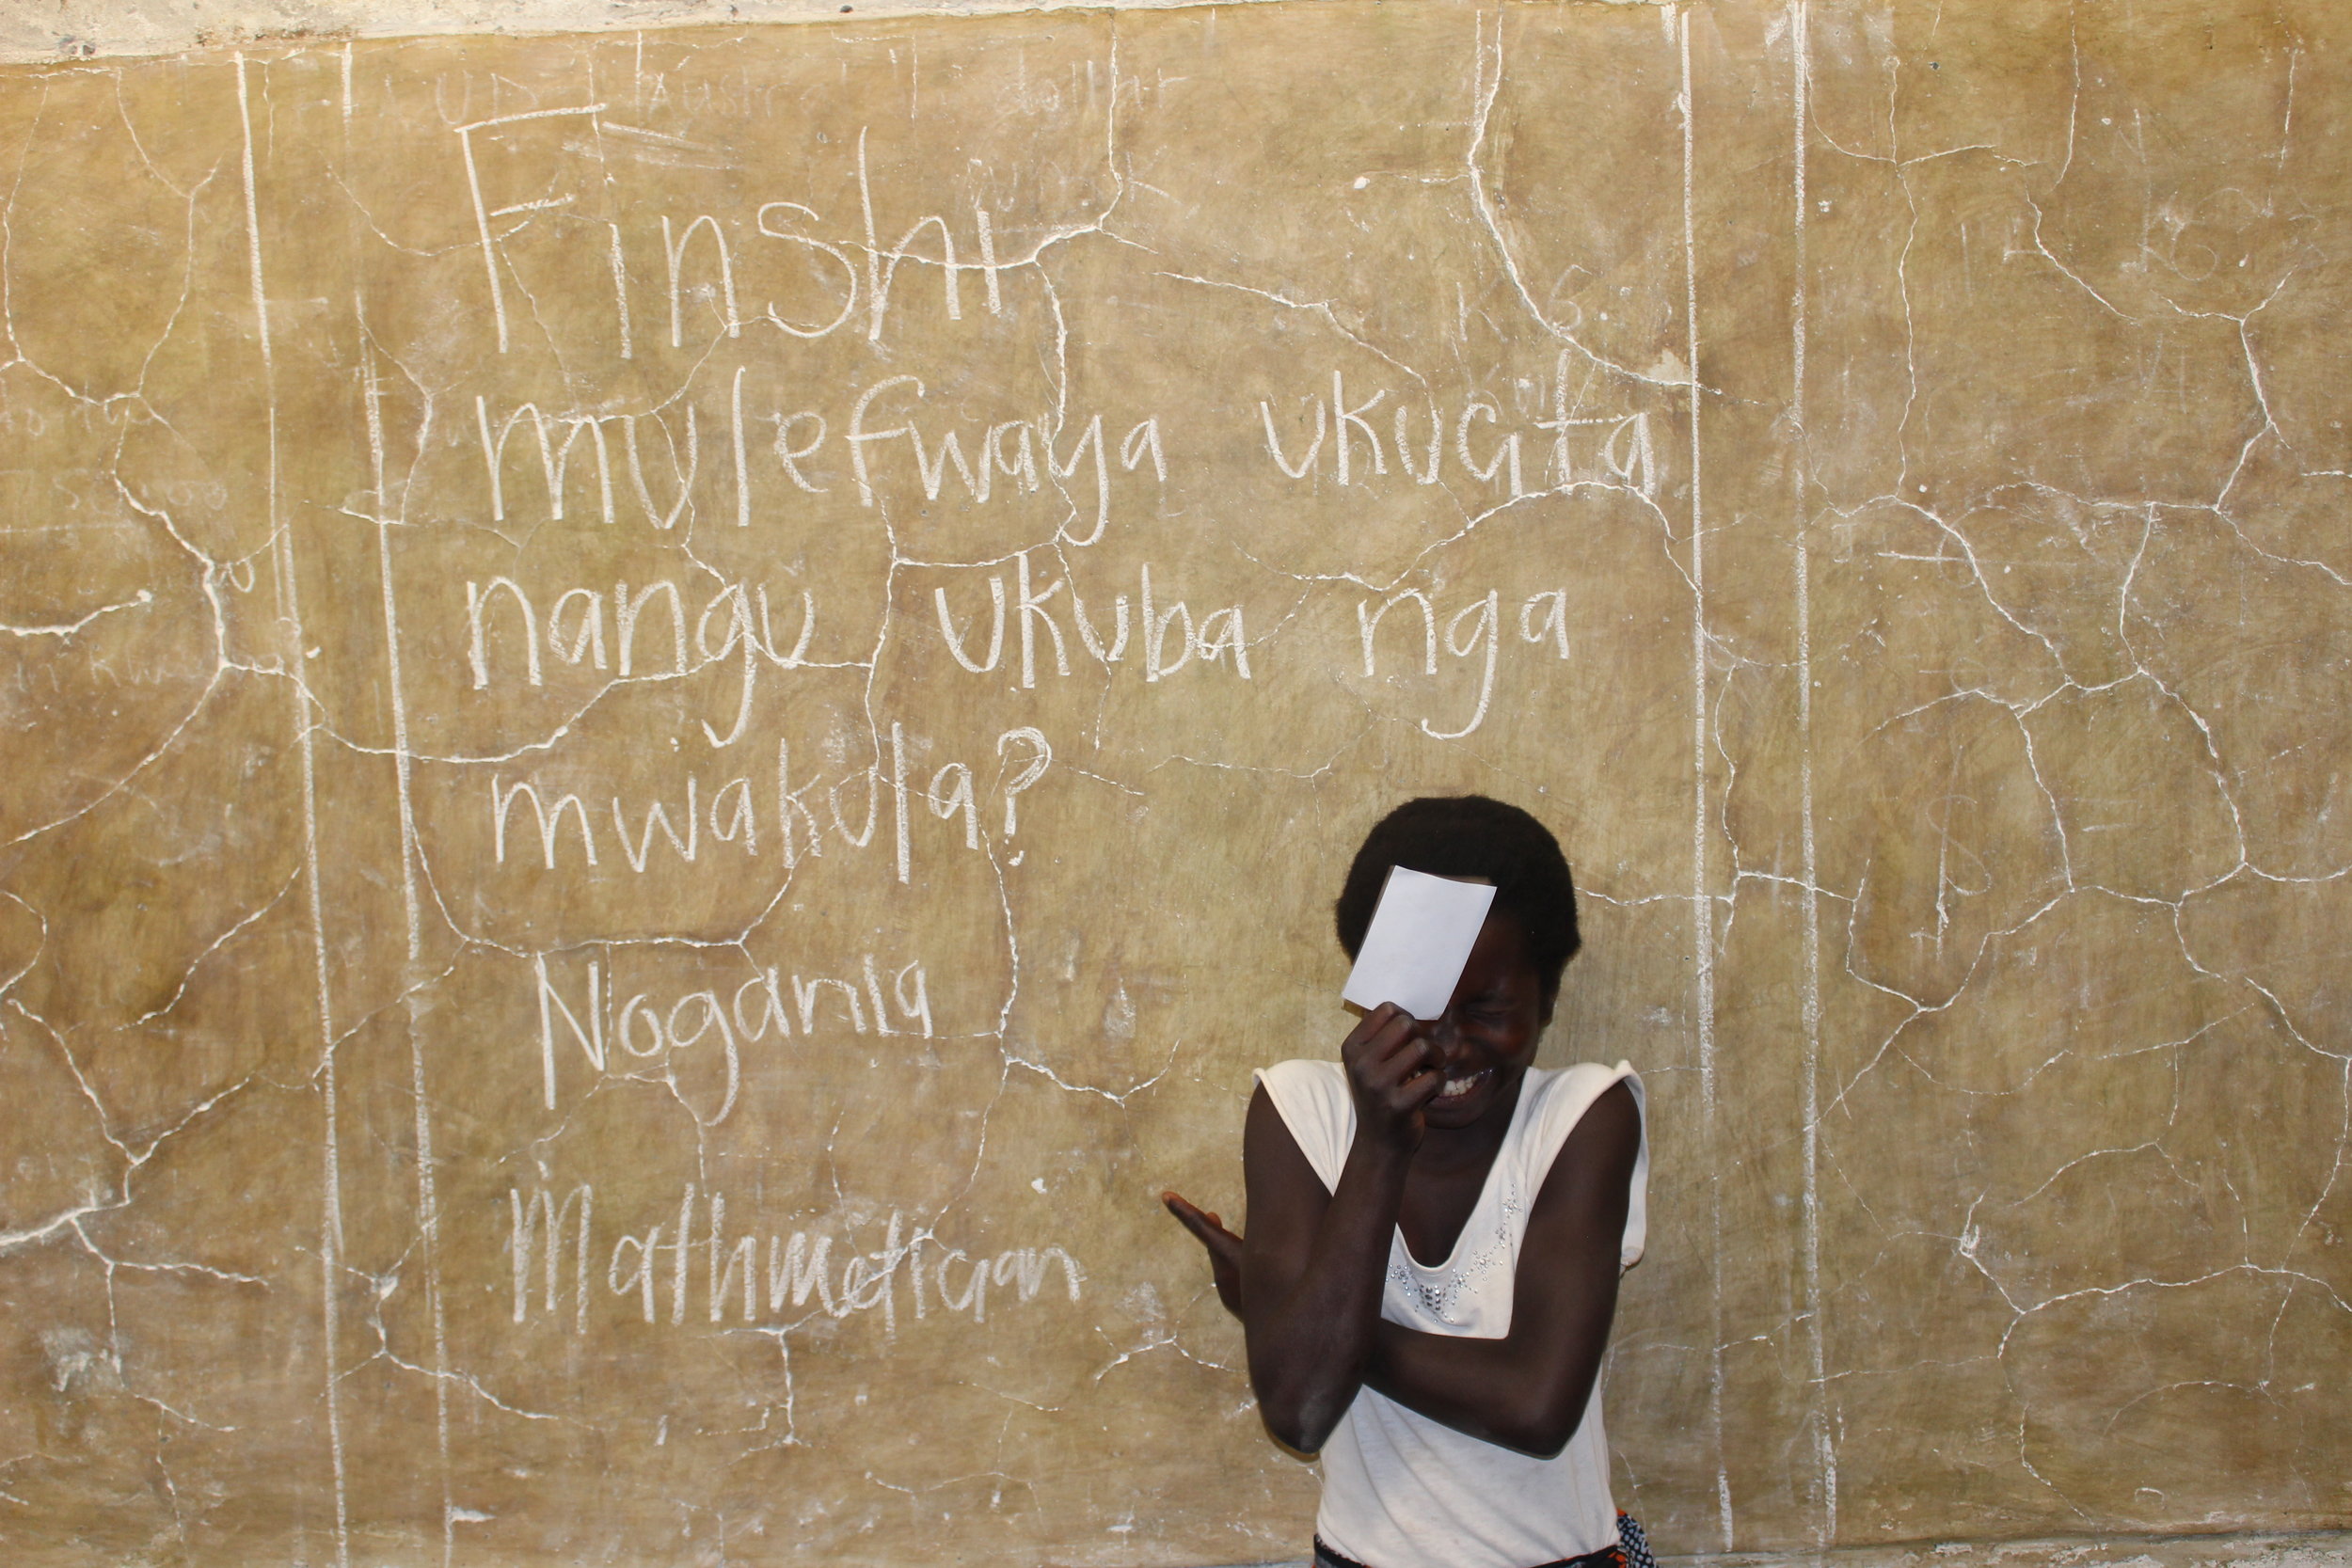 Finshi
mulefwaya ukucita
nangu ukuba nga
mwakula?
Nogdnia
Mathmetican